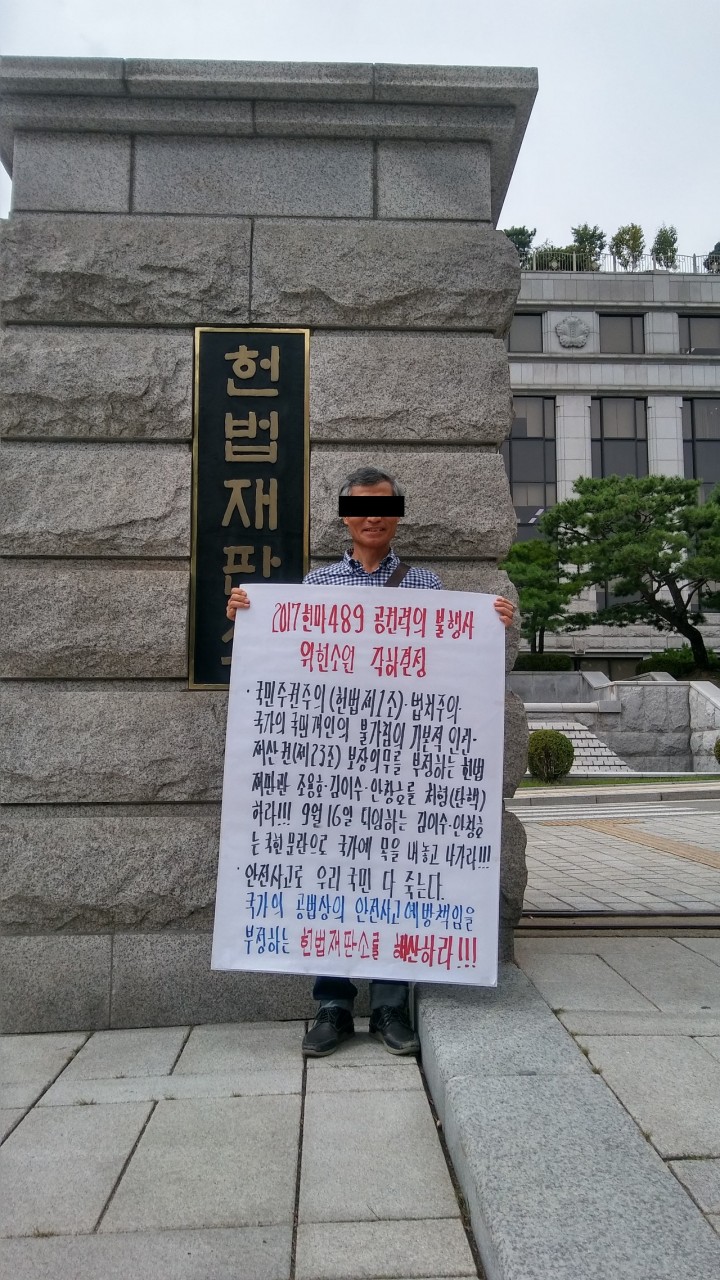 헌법재판소
2017헌마489 공권력의 불행사
위헌소원 각하결정
· 국민주권주의(헌법제1조)·법치주의·
국가의 국민개인의 불가침의 기본적 인권·
재산권(제23조) 보장의무를 부정하는 헌법
재판관 조용호·김이수·안창호를 처형(탄핵)
하라!!! 9월16일 퇴임하는 김이수·안창호
는 국헌문란으로 국가에 목을 내놓고 나가라!!!
· 안전사고로 우리 국민 다 죽는다.
국가의 공법상의 안전사고예방책임을
부정하는 헌법재판소를 해산하라!!!